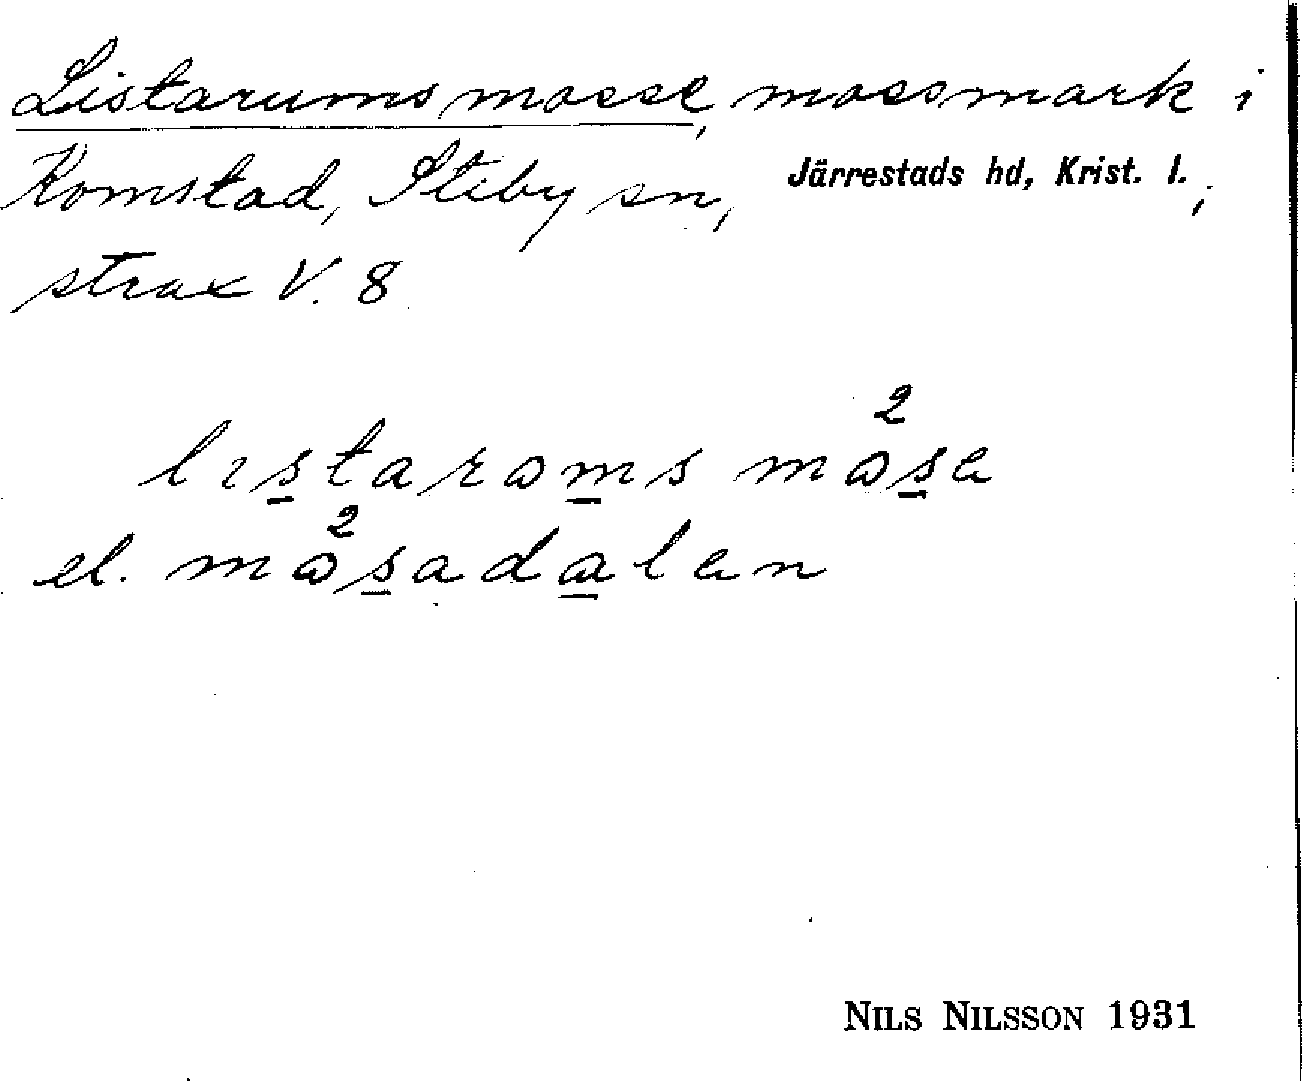 Listarums mosse, mossmark i
Komstad, Stiby sn, Järrestads hd, Krist. l.,
strax V. 8
lıs̲tarɷm̲s mɷ²s̲e
el. mɷ²s̲ada̲len
NILS NILSSON 1931